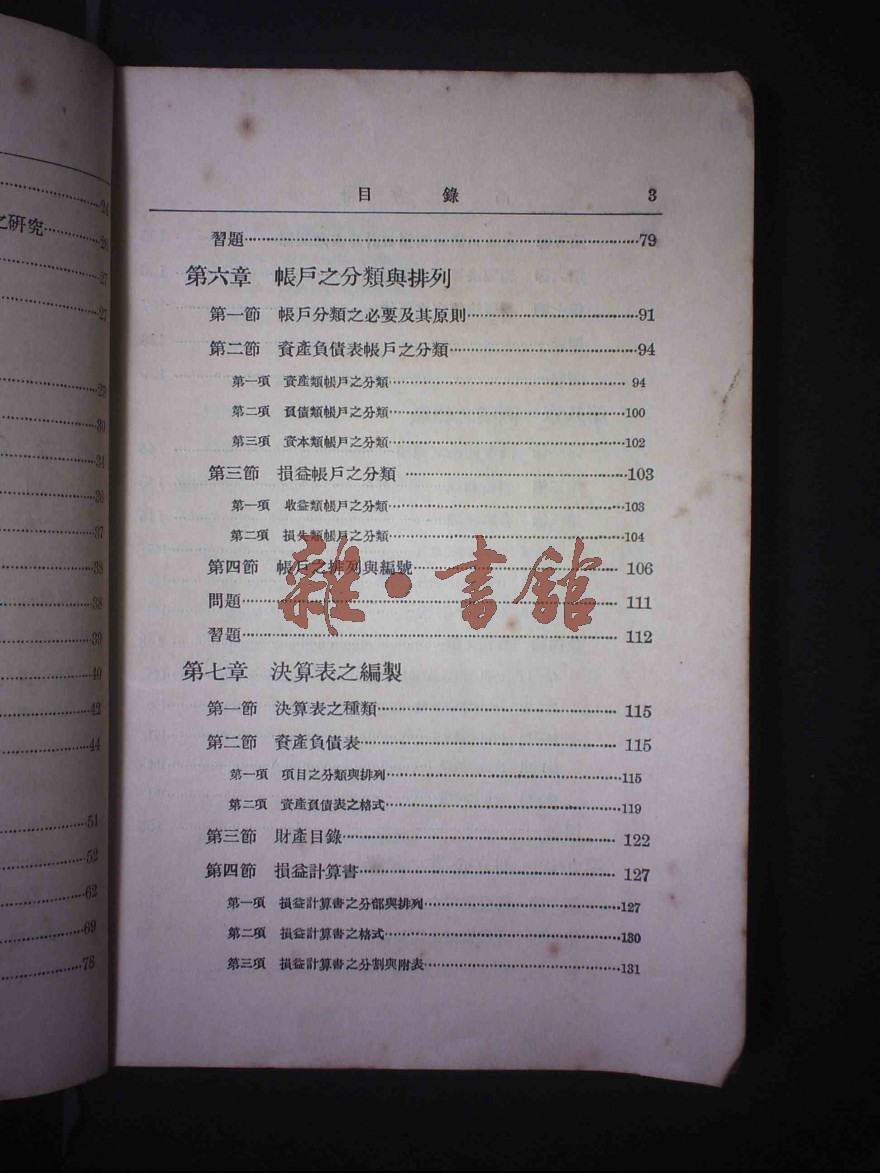 24
之研究……26
27
27
29
30
34
36
37
38
38
39
40
42
44
51
52
62
69
78
目 錄 3
習題……79
第六章 帳戶之分類與排列
第一節 帳戶分類之必要及其原則……91
第二節 資產負債表帳戶之分類……94
第一項 資產類帳戶之分類……94
第二項 負債類帳戶之分類……100
第三項 資本類帳戶之分類……102
第三節 損益帳戶之分類……103
第一項 收益類帳戶之分類……103
第二項 損失類帳戶之分類……104
第四節 帳戶之排列與編號……106
問題……111
習題……112
第七章 決算表之編製
第一節 決算表之種類……115
第二節 資產負債表……115
第一項 項目之分類與排列……115
第二項 資產負債表之格式……119
第三節 財產目錄……122
第四節 損益計算書……127
第一項 損益計算書之分部與排列……127
第二項 損益計算書之格式……130
第三項 損益計算書之分割與附表……131
雜·書館